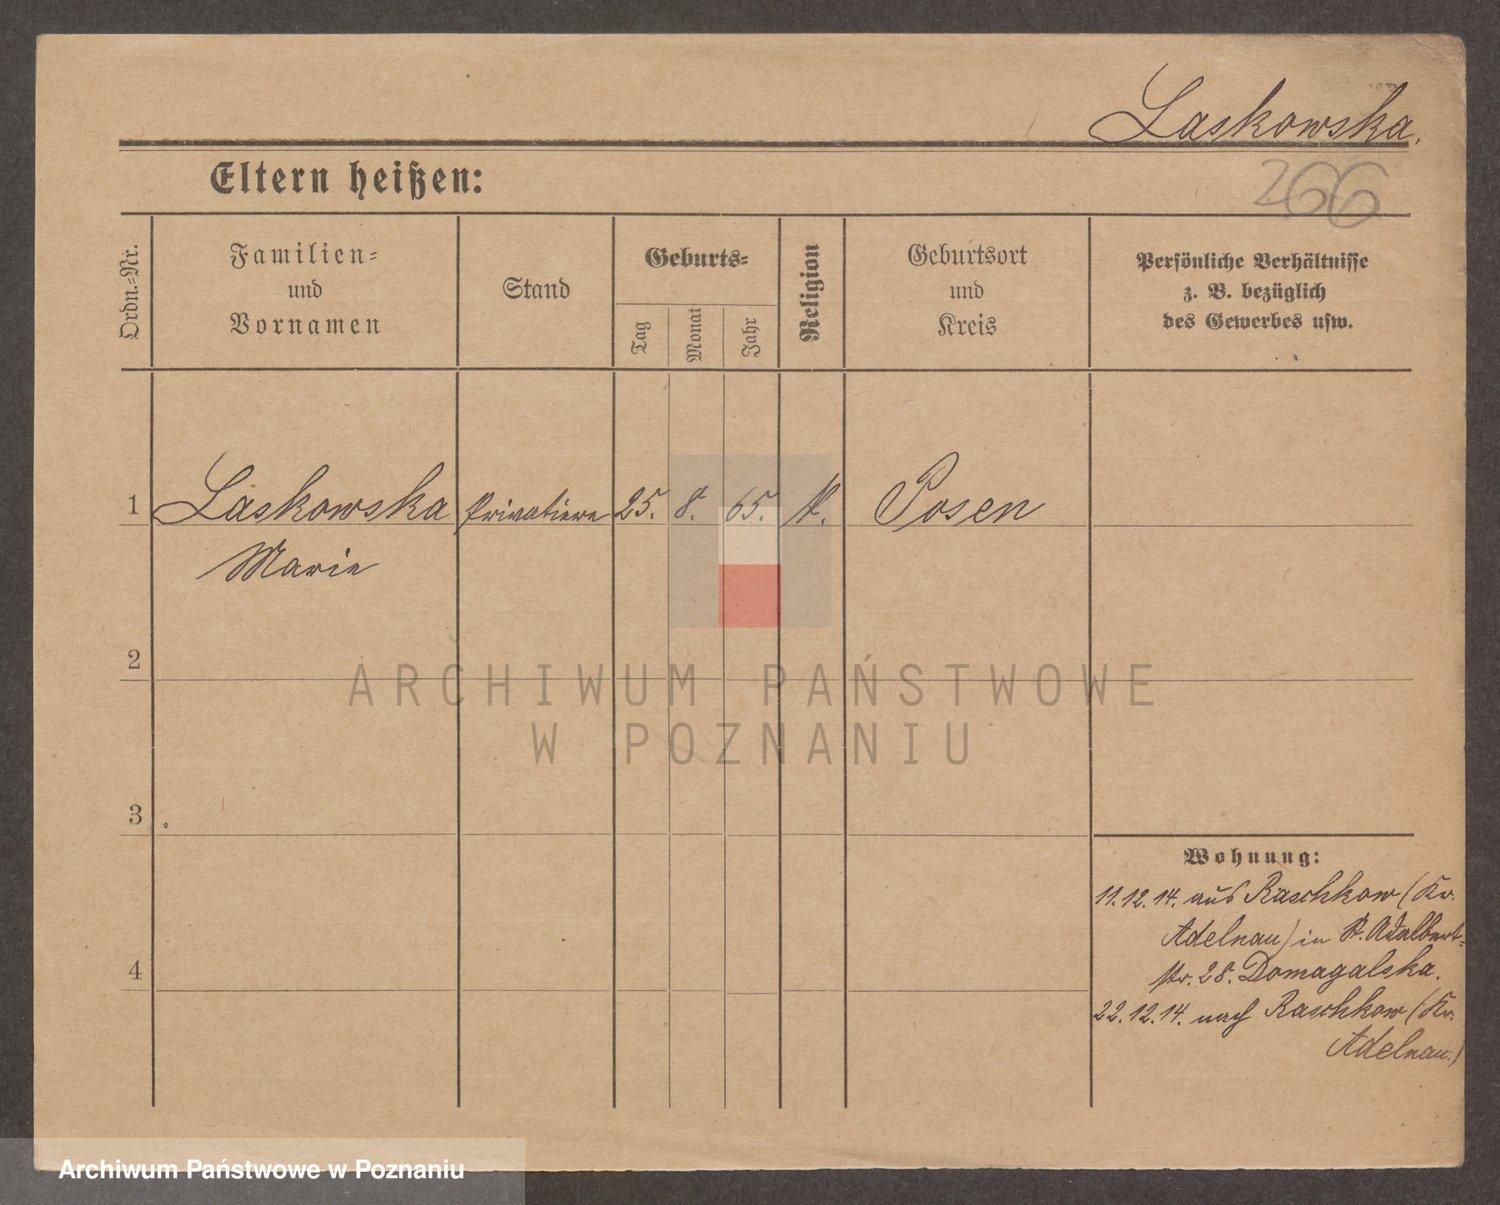 Laskowska.
266
Eltern heißen:
Ordn.-Nr.
Familien-
und
Vornamen
Stand
Geburts-
Tag
Monat
Jahr
Religion
Geburtsort
und
Kreis
Persönliche Verhältnisse
z. B. bezüglich
des Gewerbes usw.
1 Laskowska Privatiere 25. 8. 65. k. Posen
Marie
2
ARCHIWUM PAŃSTWOWE
W POZNANIU
3
Wohnung:
11.12.14. aus Raschkow (Kr.
Adelnau) in St. Adalbert-
str. 28. Domagalska.
4
22.12.14. nach Raschkow (Kr.
Adelnau.)
Archiwum Państwowe w Poznaniu